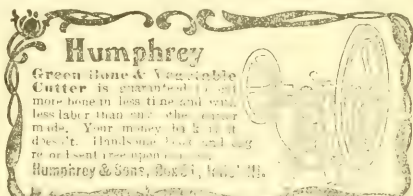 Humphrey
Green Bone & Vegetable
Cutter is guaranteed to cut
more bone in less time and with
less labor than any other cutter
made. Your money back if it
doesn't. Handsome book and egg
record sent free upon
Humphrey & Sons, Box